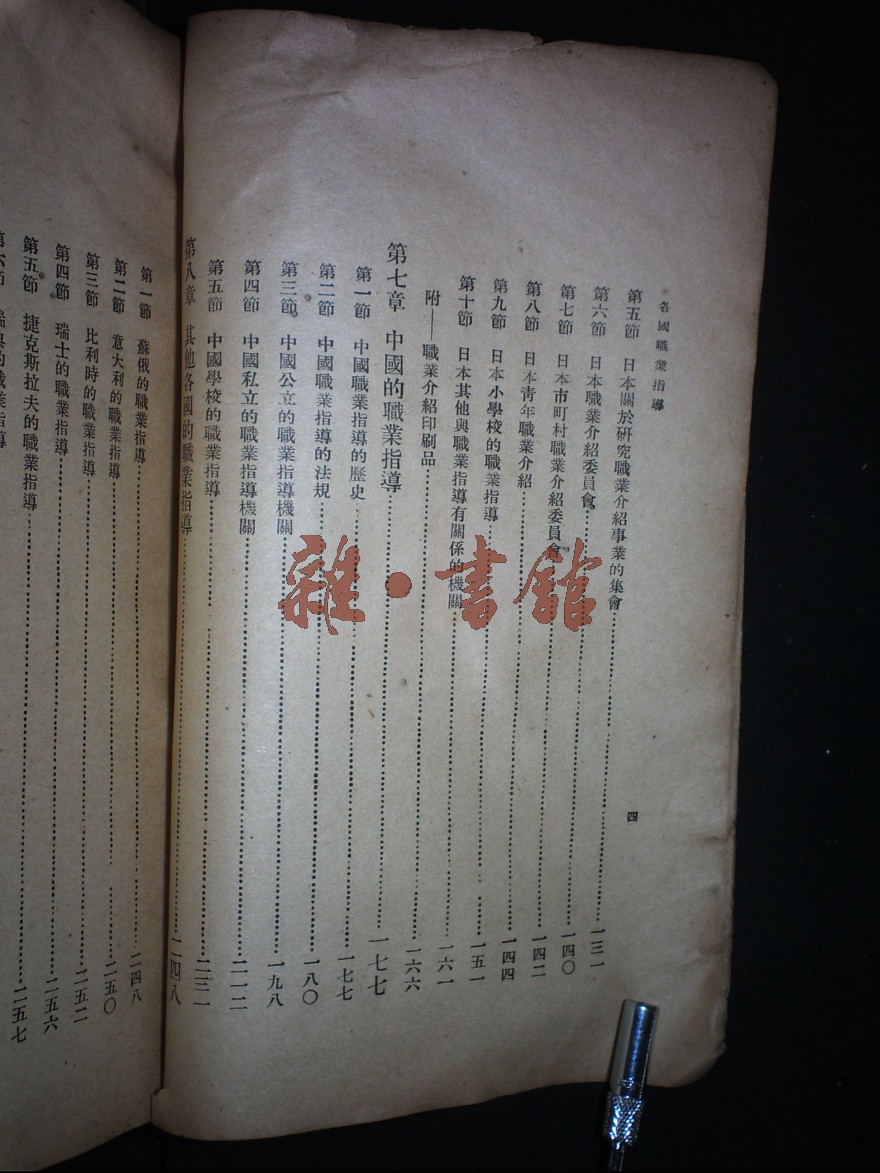 各國職業指導
四
第五節 日本關於研究職業介紹事業的集會……一三一
第六節 日本職業介紹委員會……一四〇
第七節 日本市町村職業介紹委員會……一四二
第八節 日本青年職業介紹……一四四
第九節 日本小學校的職業指導……一五一
第十節 日本其他與職業指導有關係的機關……一六一
附——職業介紹印刷品……一六六
第七章 中國的職業指導……一七七
第一節 中國職業指導的歷史……一七七
第二節 中國職業指導的法規……一八〇
第三節 中國公立的職業指導機關……一九八
第四節 中國私立的職業指導機關……二一二
第五節 中國學校的職業指導……二三一
第八章 其他各國的職業指導……二四八
第一節 蘇俄的職業指導……二四八
第二節 意大利的職業指導……二五〇
第三節 比利時的職業指導……二五二
第四節 瑞士的職業指導……二五六
第五節 捷克斯拉夫的職業指導……二五七
第六節 瑞典的職業指導
雜·書館